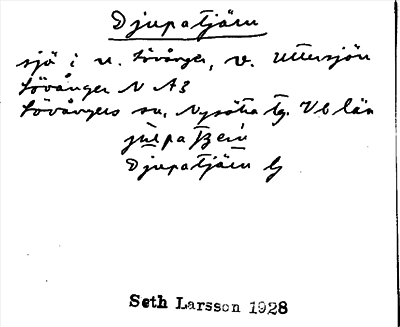 Djupatjärn
sjö i n. Lövånger, v. Uttersjön
Lövånger N A3
Lövångers sn, Nysätra tg. Vb län
Djupatjärn G
Seth Larsson 1928